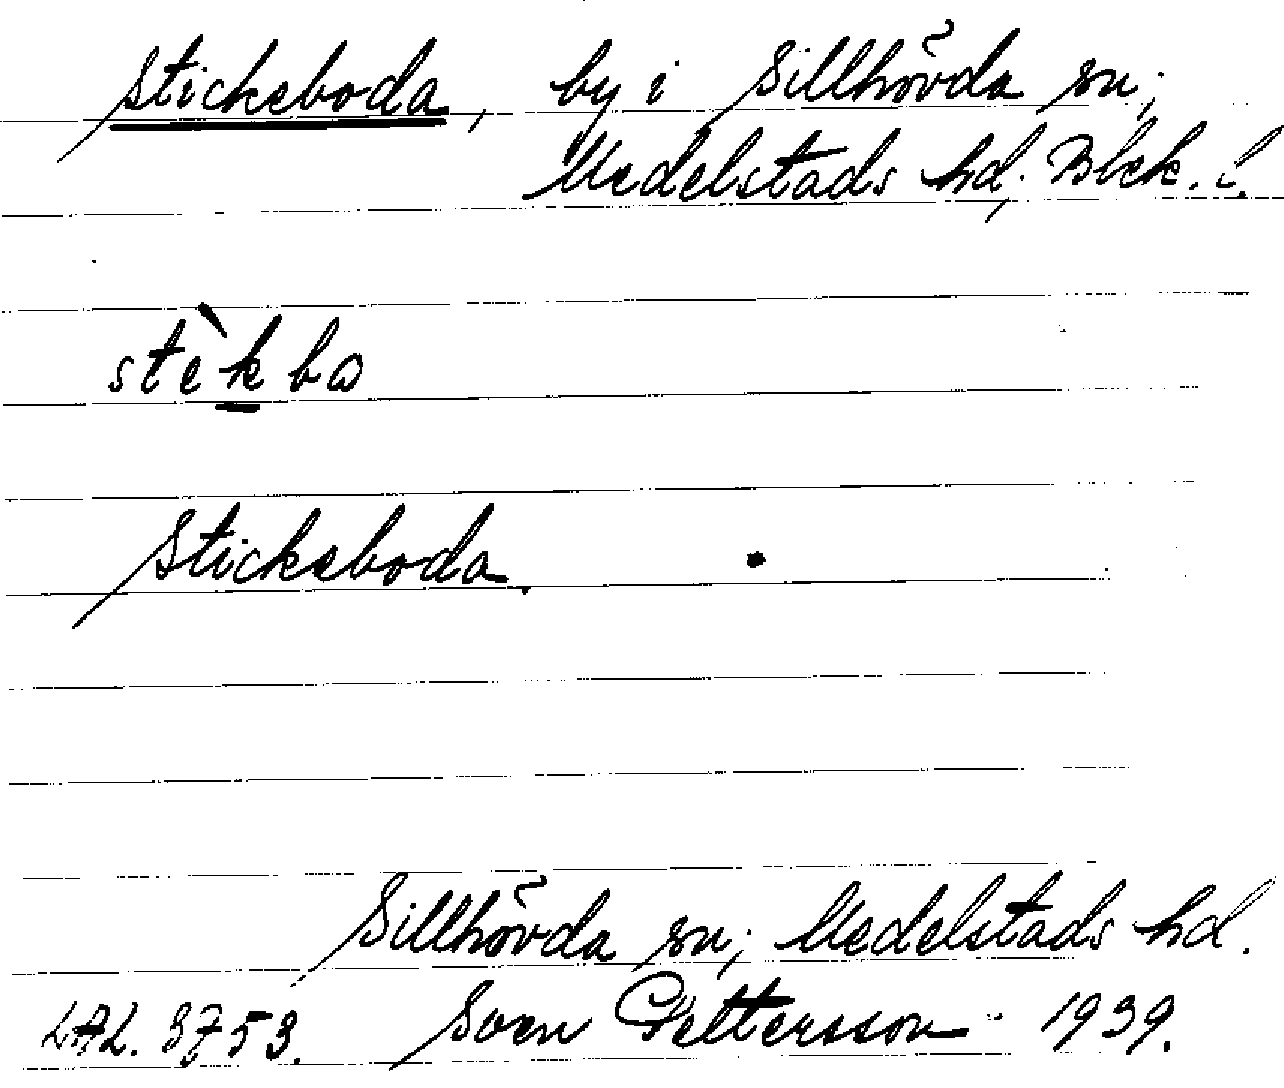 Stickeboda, by i Sillhövda sn;
Medelstads hd, Blek. l.
stèkba
Stickeboda.
Sillhövda sn; Medelstads hd.
LAL. 3753. Sven Pettersson 1939.